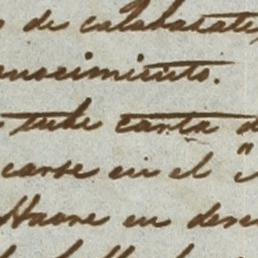 de calabazate
onocimiento.
tube carta d
carse en el "
Havre en des